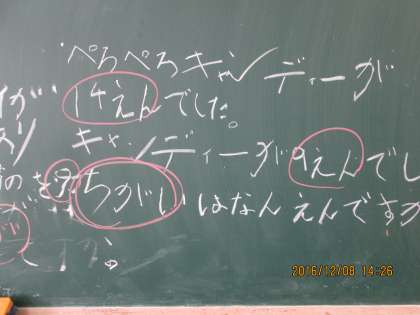 ぺろぺろキャンディーが
14えんでした。
キャンディーが9えんでし
ちがいはなんえんですか
2016/12/08 14:26